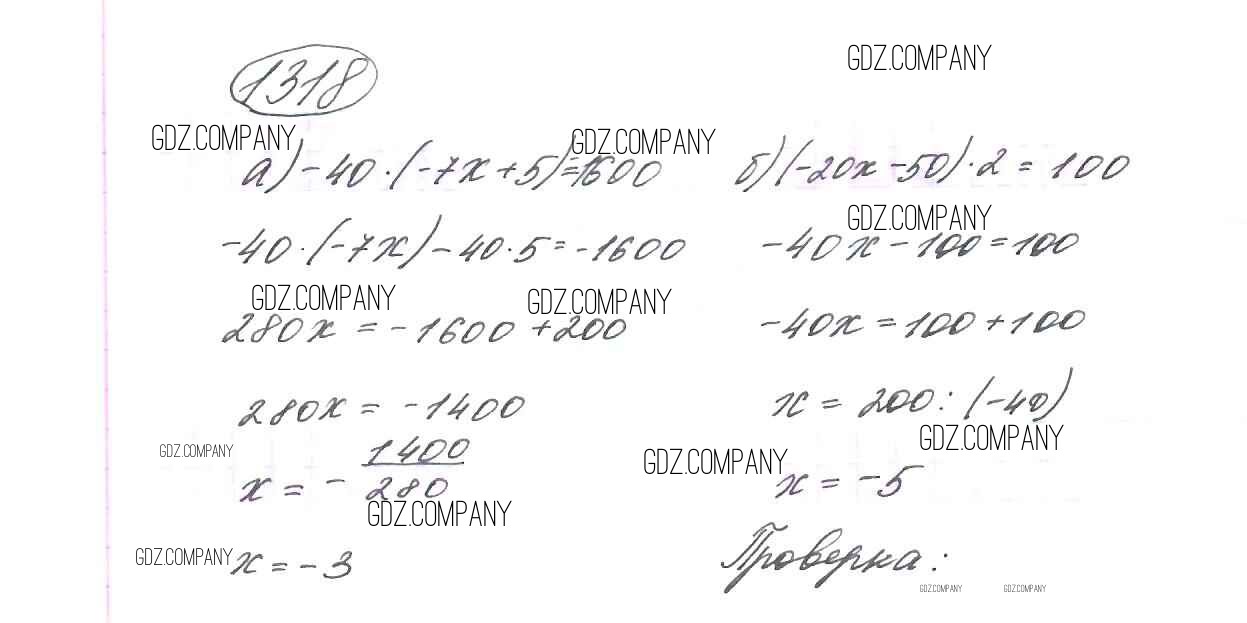 1318
GDZ.COMPANY
GDZ.COMPANY GDZ.COMPANY
а) -40·(-7x+5)=-1600
-40·(-7x)-40·5=-1600
GDZ.COMPANY GDZ.COMPANY
280x = -1600+200
280x = -1400
GDZ.COMPANY
x = - 1400/280
GDZ.COMPANY
GDZ.COMPANY
x = -3
б) (-20x-50)·2 = 100
GDZ.COMPANY
-40x-100=100
-40x=100+100
x = 200:(-40)
GDZ.COMPANY
GDZ.COMPANY
x = -5
Проверка:
GDZ.COMPANY GDZ.COMPANY